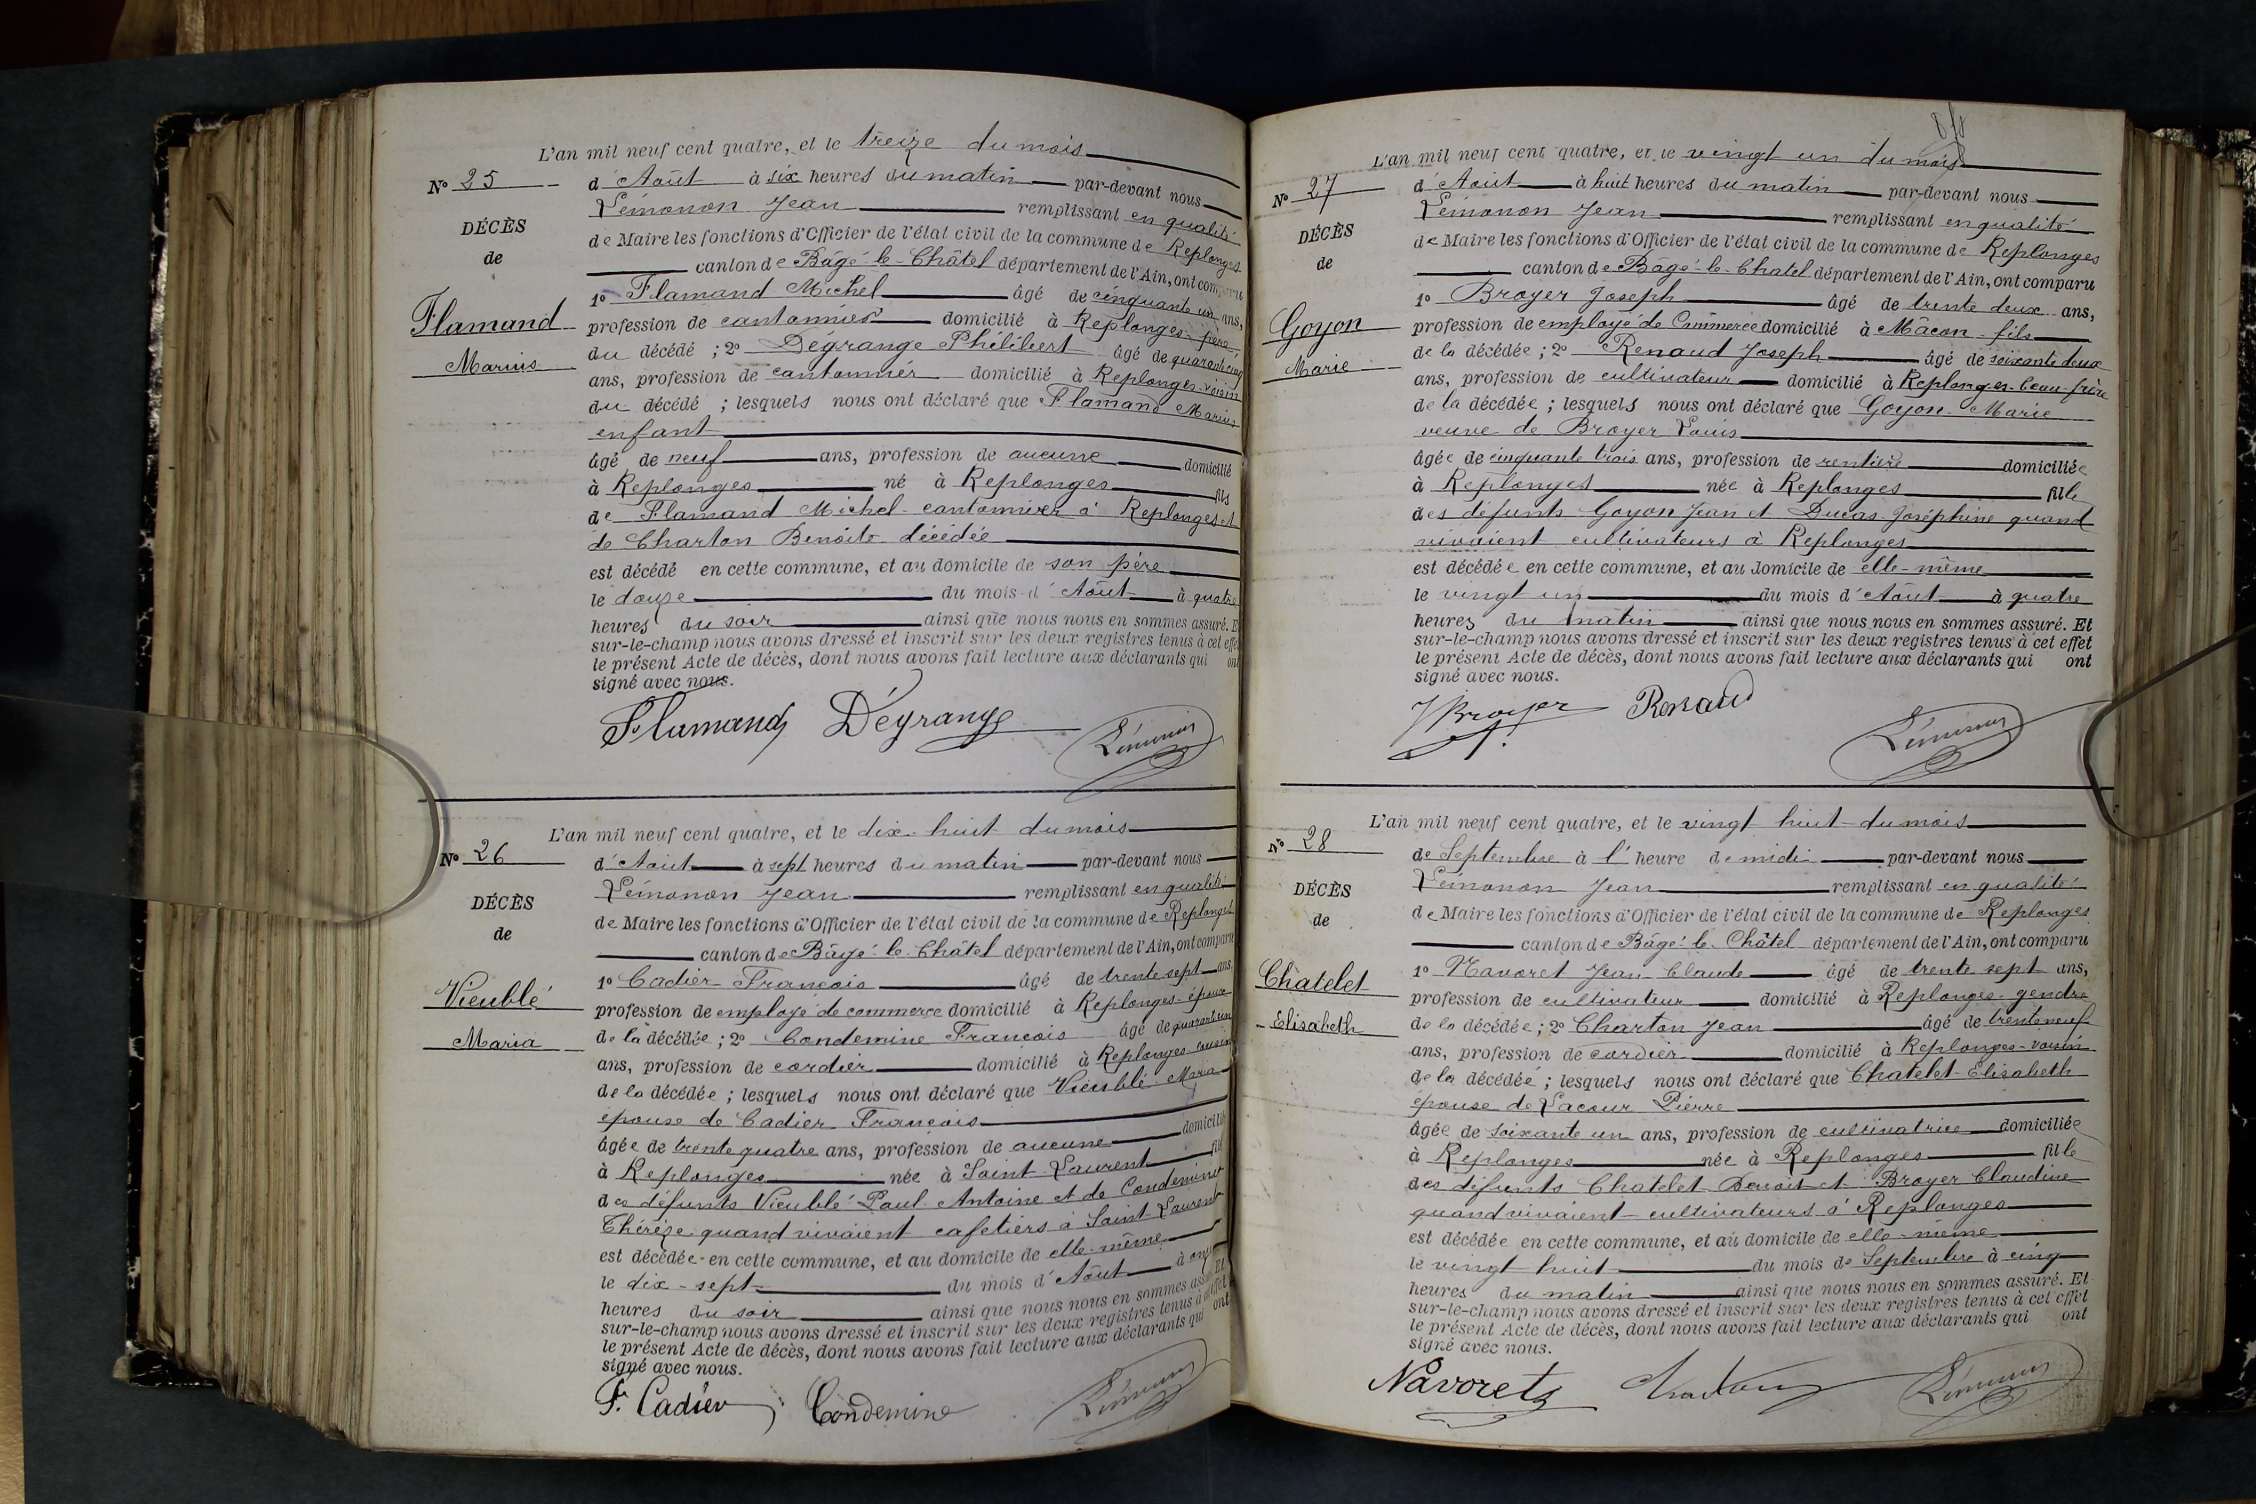 L'an mil neuf cent quatre, et le treize du mois
No 25
d'Août à six heures du matin par-devant nous
Lémonon Jean remplissant en qualité
DÉCÈS
de Maire les fonctions d'Officier de l'état civil de la commune de Replonges
de
canton de Bâgé-le-Châtel département de l'Ain, ont comparu
1o Flamand Michel âgé de cinquante un ans,
Flamand
profession de cantonnier domicilié à Replonges-père
du décédé ; 2o Dégrange Philibert âgé de quarante cinq
Marius
ans, profession de cantonnier domicilié à Replonges-voisin
du décédé ; lesquels nous ont déclaré que Flamand Marius
enfant
âgé de neuf ans, profession de aucune domicilié
à Replonges né à Replonges fils
de Flamand Michel cantonnier à Replonges et
de Charton Benoite décédée
est décédé en cette commune, et au domicile de son père
le douze du mois d'Août à quatre
heures du soir ainsi que nous nous en sommes assuré. Et
sur-le-champ nous avons dressé et inscrit sur les deux registres tenus à cet effet
le présent Acte de décès, dont nous avons fait lecture aux déclarants qui ont
signé avec nous.
Flamand Dégrange Lémonon
L'an mil neuf cent quatre, et le dix-huit du mois
No 26
d'Août à sept heures du matin par-devant nous
Lémonon Jean remplissant en qualité
DÉCÈS
de Maire les fonctions d'Officier de l'état civil de la commune de Replonges
de
canton de Bâgé-le-Châtel département de l'Ain, ont comparu
1o Cadier François âgé de trente sept ans,
Vieublé
profession de employé de commerce domicilié à Replonges-époux
Maria
de la décédée ; 2o Condemine François âgé de quarante un
ans, profession de cordier domicilié à Replonges cousin
de la décédée ; lesquels nous ont déclaré que Vieublé Maria
épouse de Cadier François
âgée de trente quatre ans, profession de aucune domiciliée
à Replonges née à Saint Laurent fille
des défunts Vieublé Paul Antoine et de Condemine
Thérèze quand vivaient cafetiers à Saint Laurent
est décédée en cette commune, et au domicile de elle-même
le dix-sept du mois d'Août à onze
heures du soir ainsi que nous nous en sommes assuré. Et
sur-le-champ nous avons dressé et inscrit sur les deux registres tenus à cet effet
le présent Acte de décès, dont nous avons fait lecture aux déclarants qui ont
signé avec nous.
F. Cadier Condemine Lémonon
L'an mil neuf cent quatre, et le vingt un du mois
No 27
d'Août à huit heures du matin par-devant nous
Lémonon Jean remplissant en qualité
DÉCÈS
de Maire les fonctions d'Officier de l'état civil de la commune de Replonges
de
canton de Bâgé-le-Chatel département de l'Ain, ont comparu
1o Broyer Joseph âgé de trente deux ans,
Goyon
profession de employé de Commerce domicilié à Mâcon fils
de la décédée ; 2o Renaud Joseph âgé de soixante deux
Marie
ans, profession de cultivateur domicilié à Replonges-beau-frère
de la décédée ; lesquels nous ont déclaré que Goyon Marie
veuve de Broyer Louis
âgée de cinquante trois ans, profession de rentière domiciliée
à Replonges née à Replonges fille
des défunts Goyon Jean et Ducas Joséphine quand
vivaient cultivateurs à Replonges
est décédée en cette commune, et au domicile de elle-même
le vingt un du mois d'Août à quatre
heures du matin ainsi que nous nous en sommes assuré. Et
sur-le-champ nous avons dressé et inscrit sur les deux registres tenus à cet effet
le présent Acte de décès, dont nous avons fait lecture aux déclarants qui ont
signé avec nous.
J Broyer Renaud Lémonon
L'an mil neuf cent quatre, et le vingt huit du mois
No 28
de Septembre à l'heure de midi par-devant nous
Lémonon Jean remplissant en qualité
DÉCÈS
de Maire les fonctions d'Officier de l'état civil de la commune de Replonges
de
canton de Bâgé-le-Châtel département de l'Ain, ont comparu
1o Navoret Jean Claude âgé de trente sept ans,
Châtelet
profession de cultivateur domicilié à Replonges-gendre
Elisabeth
de la décédée ; 2o Charton Jean âgé de trente neuf
ans, profession de cordier domicilié à Replonges-voisin
de la décédée ; lesquels nous ont déclaré que Chatelet Elisabeth
épouse de Lacour Pierre
âgée de soixante un ans, profession de cultivatrice domiciliée
à Replonges née à Replonges fille
des défunts Chatelet Benoit et Broyer Claudine
quand vivaient cultivateurs à Replonges
est décédée en cette commune, et au domicile de elle-même
le vingt huit du mois de Septembre à cinq
heures du matin ainsi que nous nous en sommes assuré. Et
sur-le-champ nous avons dressé et inscrit sur les deux registres tenus à cet effet
le présent Acte de décès, dont nous avons fait lecture aux déclarants qui ont
signé avec nous.
Navoret Charton Lémonon